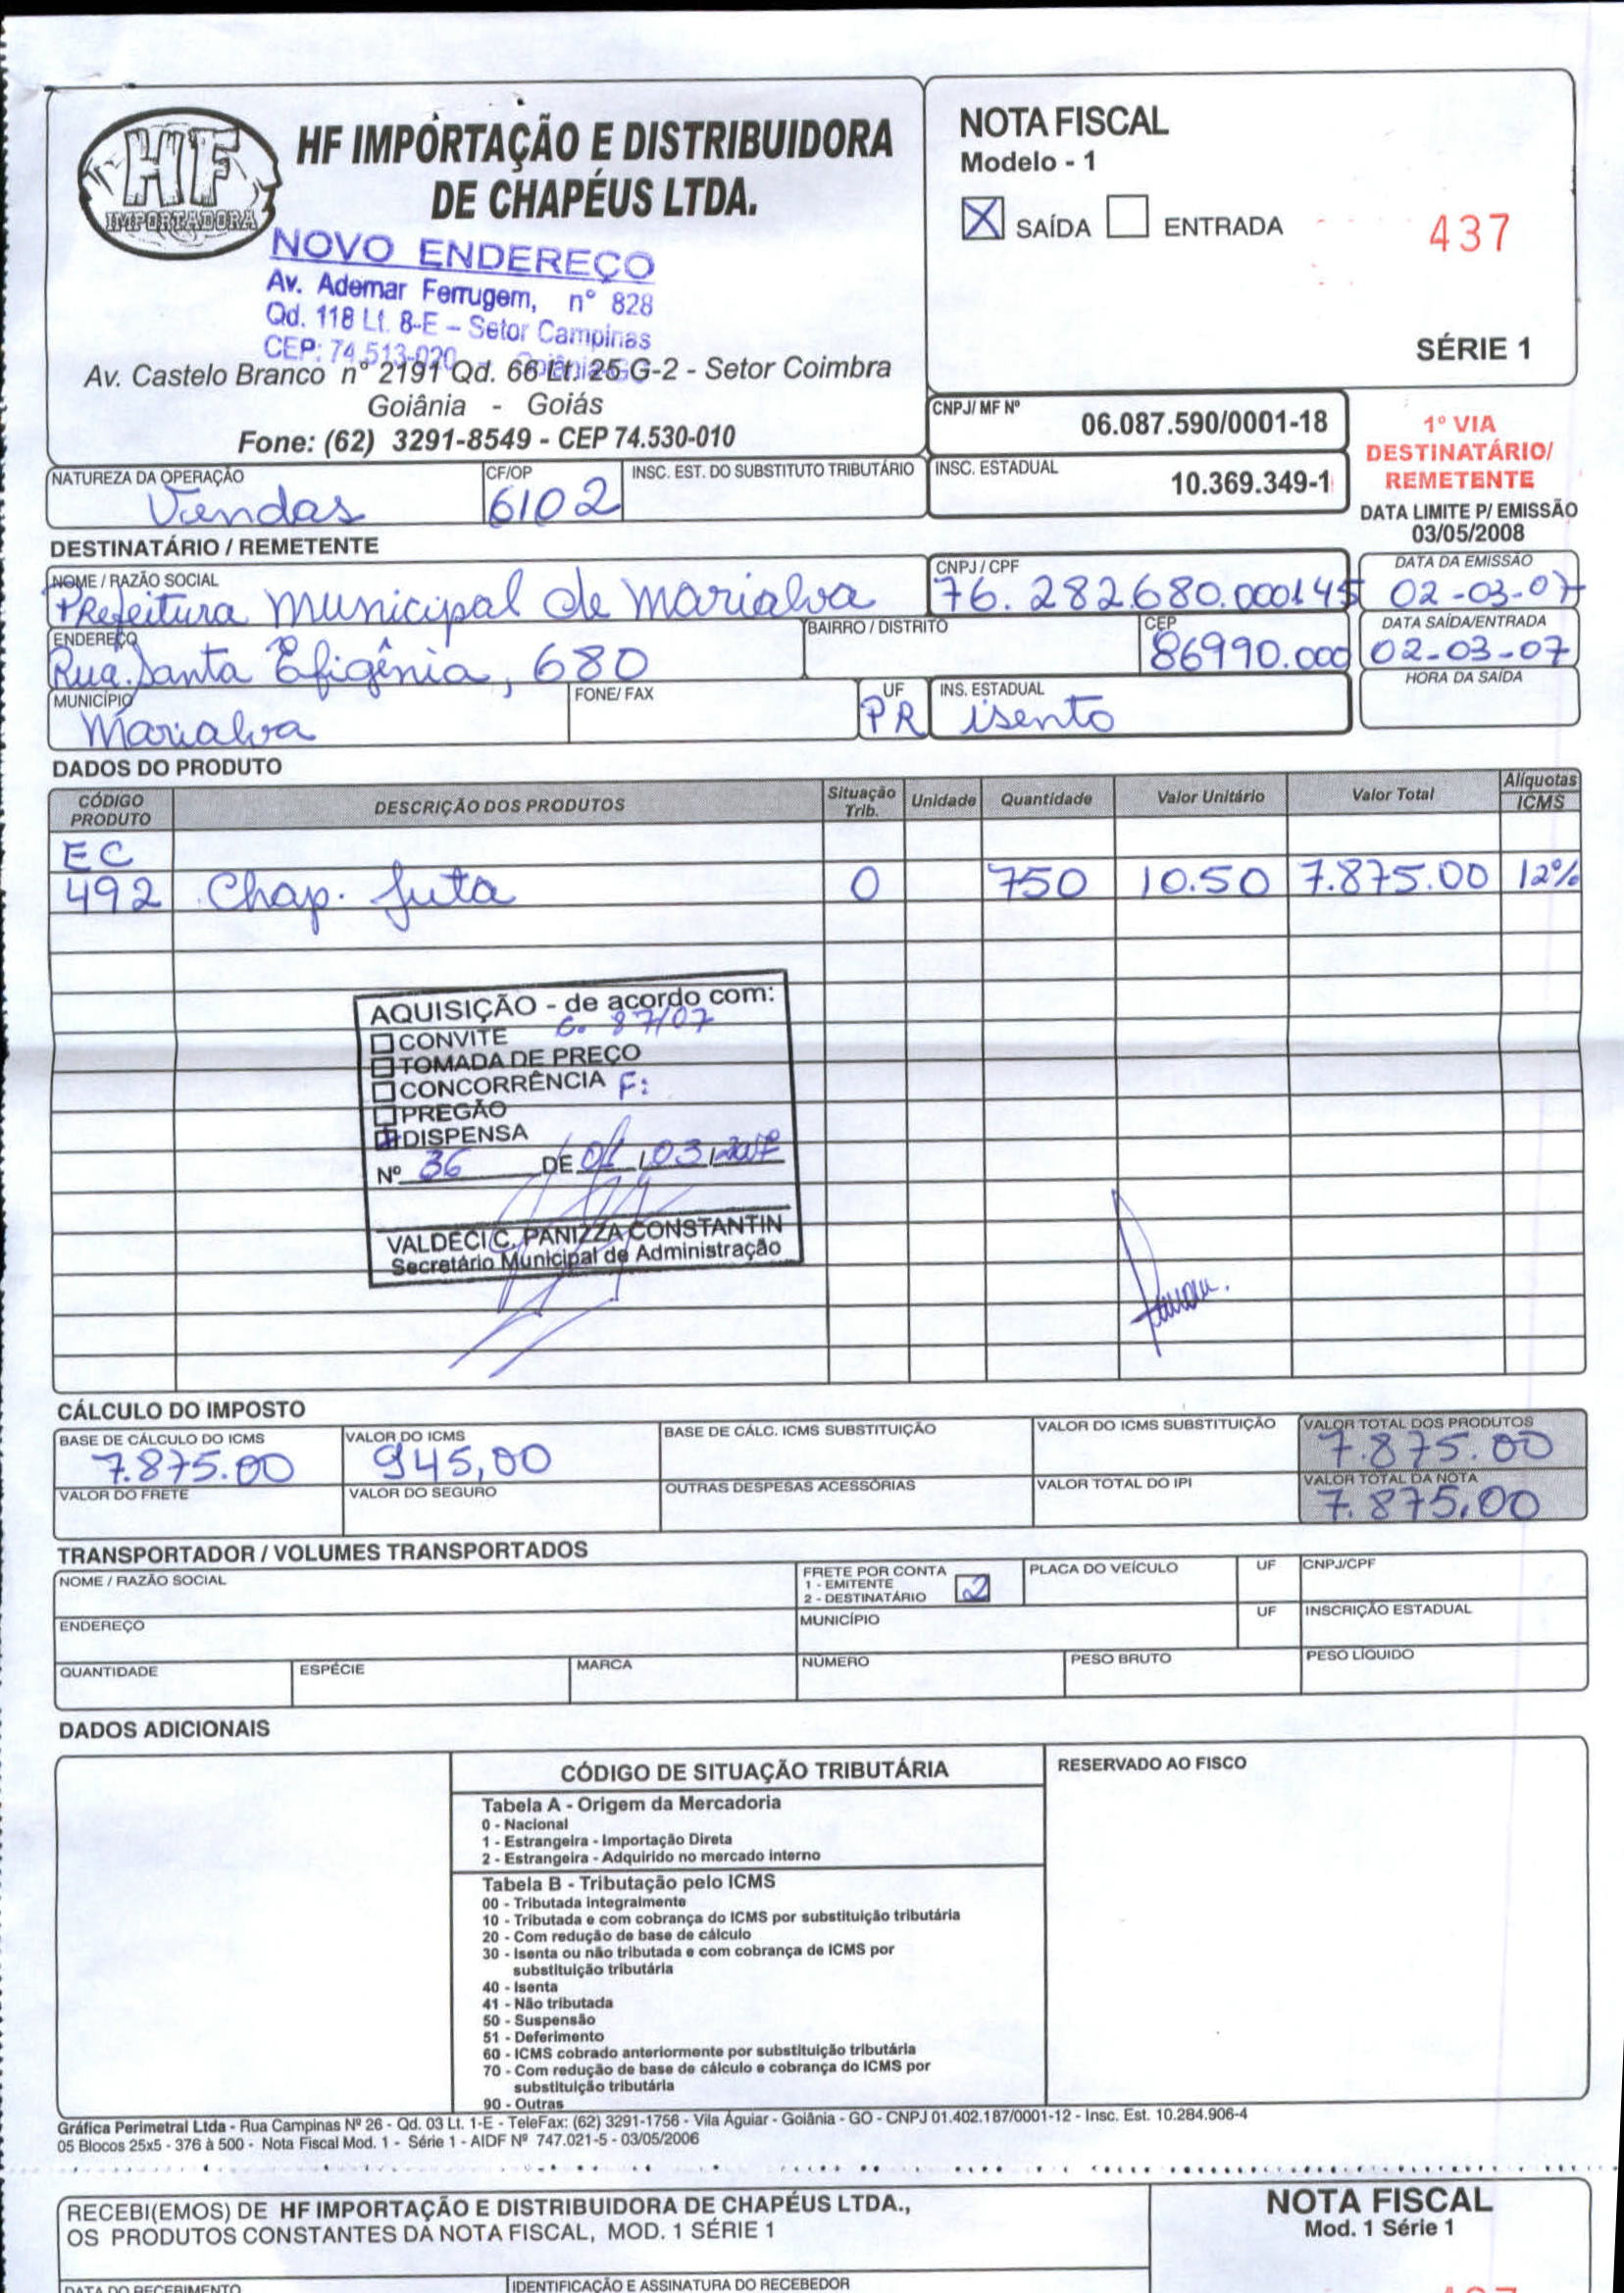 HF IMPORTADORA
HF IMPORTAÇÃO E DISTRIBUIDORA
DE CHAPÉUS LTDA.
NOVO ENDEREÇO
Av. Ademar Ferrugem, nº 828
Qd. 118 Lt. 8-E – Setor Campinas
CEP: 74.513-020 - Goiânia-GO
Av. Castelo Branco nº 2191 Qd. 66 Lt. 25 G-2 - Setor Coimbra
Goiânia - Goiás
Fone: (62) 3291-8549 - CEP 74.530-010
NOTA FISCAL
Modelo - 1
X SAÍDA ENTRADA
437
SÉRIE 1
CNPJ/ MF Nº 06.087.590/0001-18
INSC. ESTADUAL 10.369.349-1
1º VIA
DESTINATÁRIO/
REMETENTE
DATA LIMITE P/ EMISSÃO
03/05/2008
NATUREZA DA OPERAÇÃO CF/OP INSC. EST. DO SUBSTITUTO TRIBUTÁRIO
Vendas 6102
DESTINATÁRIO / REMETENTE
NOME / RAZÃO SOCIAL CNPJ / CPF DATA DA EMISSÃO
Prefeitura Municipal de Marialva 76.282.680.000145 02-03-07
ENDEREÇO BAIRRO / DISTRITO CEP DATA SAÍDA/ENTRADA
Rua. Santa Efigênia, 680 86990.000 02-03-07
MUNICÍPIO FONE/ FAX UF INS. ESTADUAL HORA DA SAÍDA
Marialva PR isento
DADOS DO PRODUTO
CÓDIGO PRODUTO DESCRIÇÃO DOS PRODUTOS Situação Trib. Unidade Quantidade Valor Unitário Valor Total Alíquotas ICMS
EC
492 Chap. Juta 0 750 10.50 7.875.00 12%
AQUISIÇÃO - de acordo com:
CONVITE C. 87/07
TOMADA DE PREÇO
CONCORRÊNCIA F:
PREGÃO
DISPENSA
Nº 36 DE 01/03/2007
VALDECI C. PANIZZA CONSTANTIN
Secretário Municipal de Administração
CÁLCULO DO IMPOSTO
BASE DE CÁLCULO DO ICMS VALOR DO ICMS BASE DE CÁLC. ICMS SUBSTITUIÇÃO VALOR DO ICMS SUBSTITUIÇÃO VALOR TOTAL DOS PRODUTOS
7.875.00 945,00 7.875.00
VALOR DO FRETE VALOR DO SEGURO OUTRAS DESPESAS ACESSÓRIAS VALOR TOTAL DO IPI VALOR TOTAL DA NOTA
7.875,00
TRANSPORTADOR / VOLUMES TRANSPORTADOS
NOME / RAZÃO SOCIAL FRETE POR CONTA PLACA DO VEÍCULO UF CNPJ/CPF
1 - EMITENTE
2 - DESTINATÁRIO 2
ENDEREÇO MUNICÍPIO UF INSCRIÇÃO ESTADUAL
QUANTIDADE ESPÉCIE MARCA NÚMERO PESO BRUTO PESO LÍQUIDO
DADOS ADICIONAIS
CÓDIGO DE SITUAÇÃO TRIBUTÁRIA
RESERVADO AO FISCO
Tabela A - Origem da Mercadoria
0 - Nacional
1 - Estrangeira - Importação Direta
2 - Estrangeira - Adquirido no mercado interno
Tabela B - Tributação pelo ICMS
00 - Tributada integralmente
10 - Tributada e com cobrança do ICMS por substituição tributária
20 - Com redução de base de cálculo
30 - Isenta ou não tributada e com cobrança de ICMS por
substituição tributária
40 - Isenta
41 - Não tributada
50 - Suspensão
51 - Deferimento
60 - ICMS cobrado anteriormente por substituição tributária
70 - Com redução de base de cálculo e cobrança do ICMS por
substituição tributária
90 - Outras
Gráfica Perimetral Ltda - Rua Campinas Nº 26 - Qd. 03 Lt. 1-E - TeleFax: (62) 3291-1756 - Vila Aguiar - Goiânia - GO - CNPJ 01.402.187/0001-12 - Insc. Est. 10.284.906-4
05 Blocos 25x5 - 376 à 500 - Nota Fiscal Mod. 1 - Série 1 - AIDF Nº 747.021-5 - 03/05/2006
RECEBI(EMOS) DE HF IMPORTAÇÃO E DISTRIBUIDORA DE CHAPÉUS LTDA.,
OS PRODUTOS CONSTANTES DA NOTA FISCAL, MOD. 1 SÉRIE 1
NOTA FISCAL
Mod. 1 Série 1
DATA DO RECEBIMENTO IDENTIFICAÇÃO E ASSINATURA DO RECEBEDOR